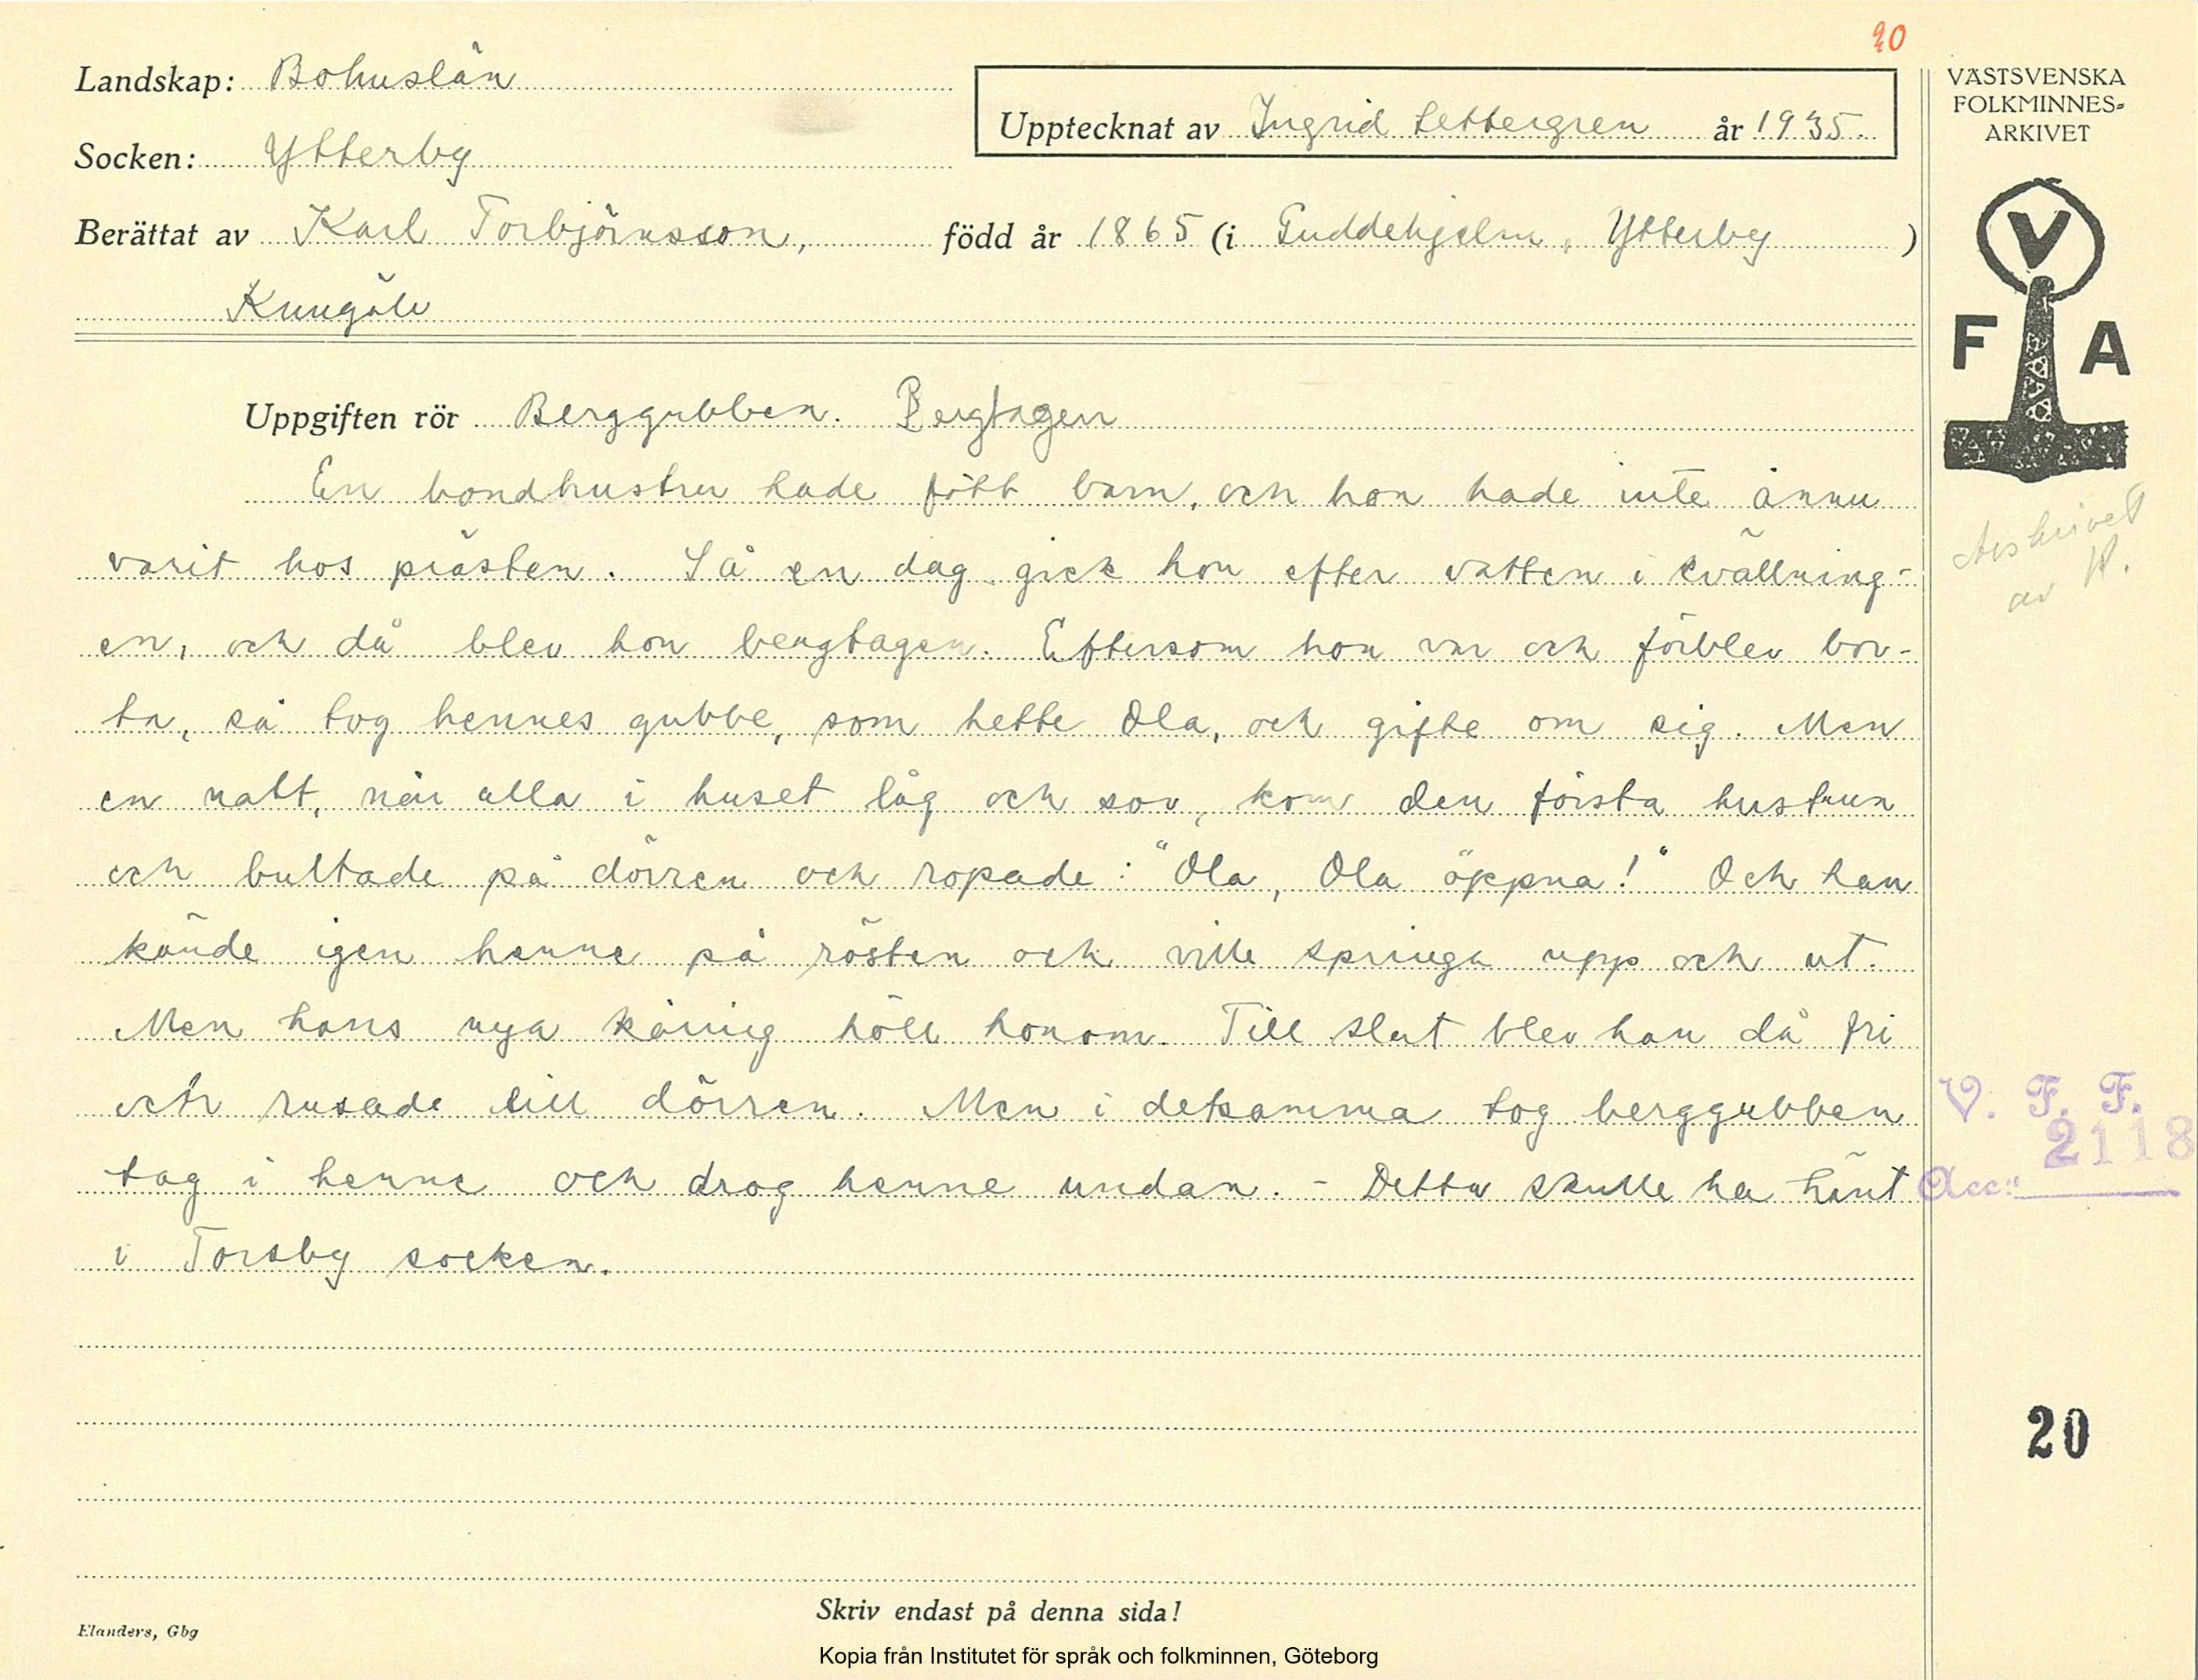 20
Landskap: Bohuslän
Socken: Ytterby
Upptecknat av Ingrid Settergren år 1935.
Berättat av Karl Torbjörnsson, född år 1865 (i Guddehjelm, Ytterby )
Kungälv
VÄSTSVENSKA
FOLKMINNES-
ARKIVET
V
F A
Uppgiften rör Berggubben. Bergtagen
En bondhustru hade fött barn, och hon hade inte ännu
varit hos prästen. Så en dag gick hon efter vatten i kvällning-
en, och då blev hon bergtagen. Eftersom hon var och förblev bor-
ta, så tog hennes gubbe, som hette Ola, och gifte om sig. Men
en natt, när alla i huset låg och sov, kom den första hustrun
och bultade på dörren och ropade: "Ola, Ola öppna!" Och han
kände igen henne på rösten och ville springa upp och ut.
Men hans nya käring höll honom. Till slut blev han då fri
och rusade till dörren. Men i detsamma tog berggubben
tag i henne och drog henne undan. - Detta skulle ha hänt
i Torsby socken.
Avskrivet
av
V. F. F.
2118
Acc:
20
Skriv endast på denna sida!
Elanders, Gbg
Kopia från Institutet för språk och folkminnen, Göteborg